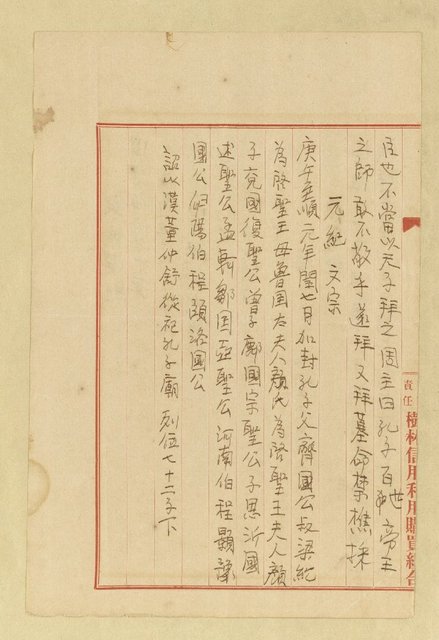 臣也不當以天子拜之周主曰孔子百世帝王
之師敢不敬乎遂拜又拜墓命禁樵採
元紀 文宗
庚午至順元年閏七月加封孔子父齊國公叔梁紇
為啓聖王母魯国太夫人顏氏為啓聖王夫人顏
子兗國復聖公曾子郕國宗聖公子思沂國
述聖公孟軻鄒国亞聖公河南伯程顥豫
國公伊陽伯程頤洛國公
詔以漢董仲舒從祀孔子廟列位七十二子下
責任
樹林信用利用購買組合